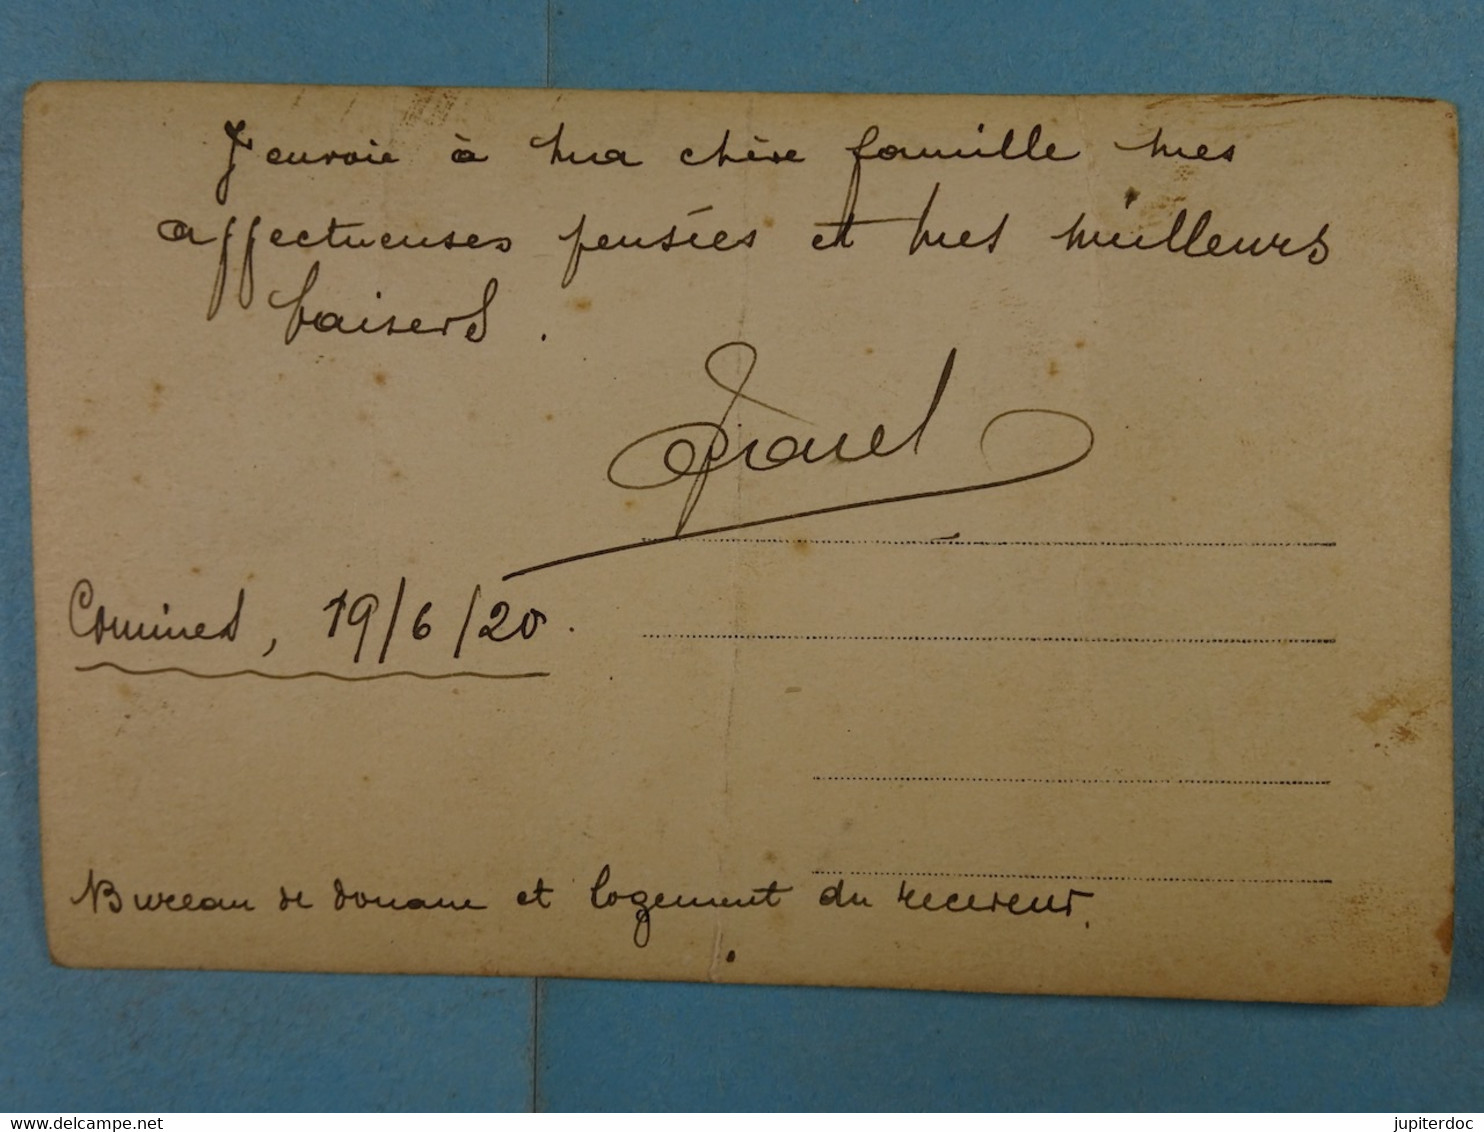 J'envoie à ma chère famille mes
affectueuses pensées et mes meilleurs
baisers.
Comines, 19/6/20.
Bureau de douane et logement du receveur.
delcampe.net
jupiterdoc